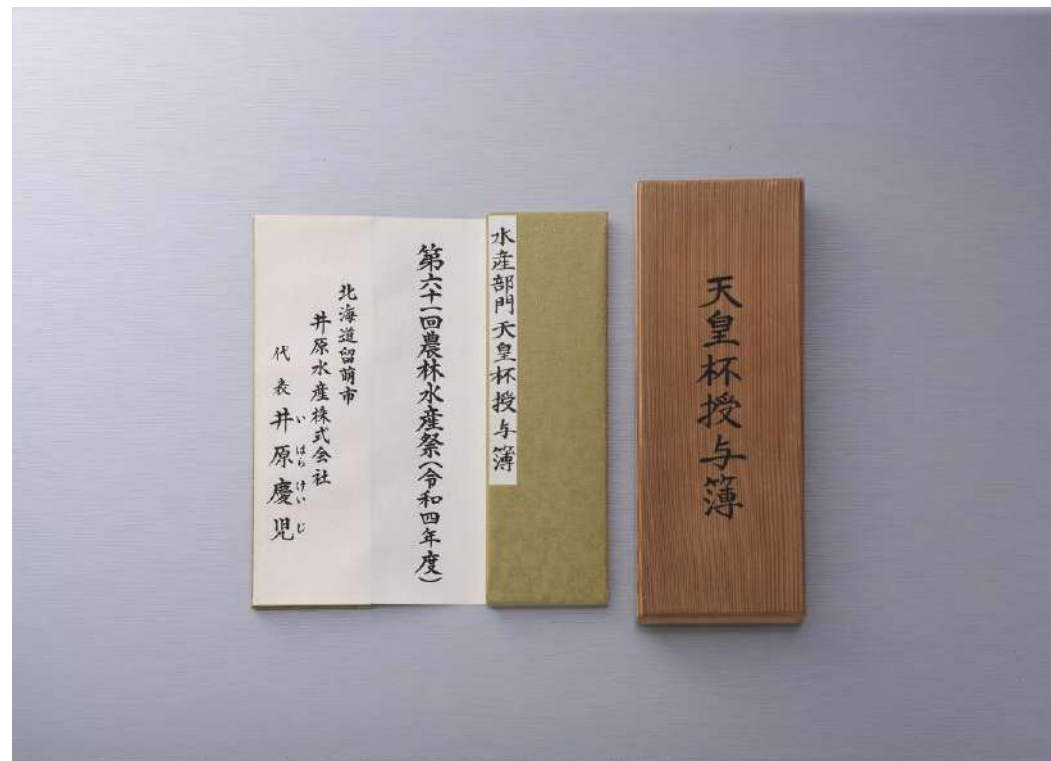 天皇杯授与簿
水産部門天皇杯授与簿
第六十一回農林水産祭(令和四年度)
北海道留萌市
井原水産株式会社
代表 井原慶児
いはらけいじ